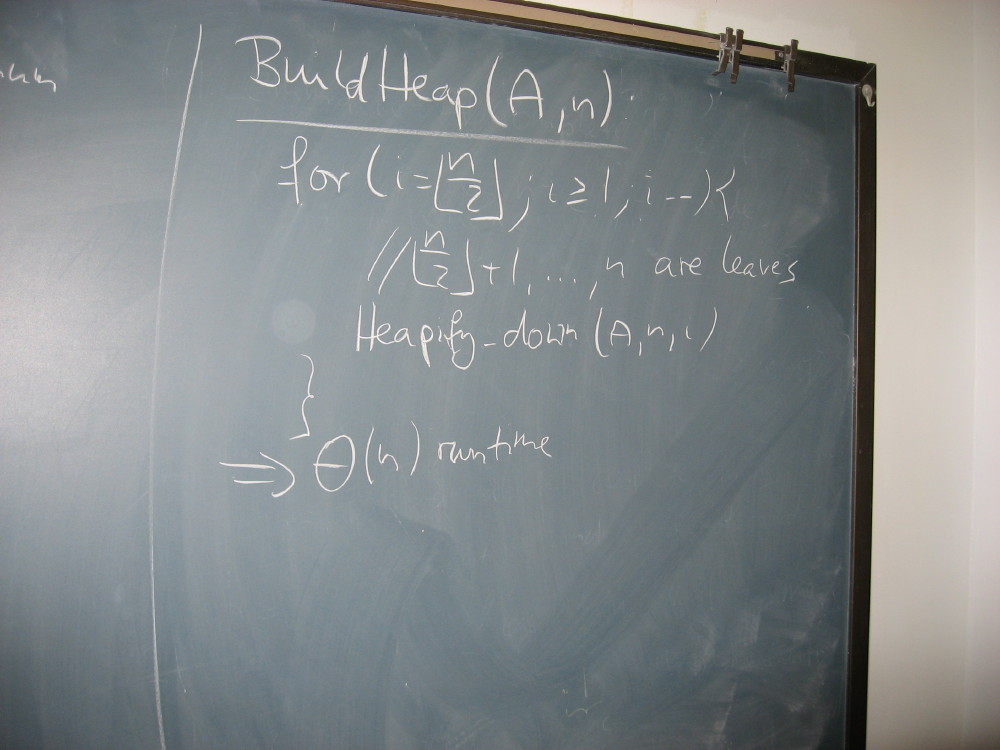 BuildHeap(A,n):
for (i=⌊n/2⌋; i≥1; i--){
//⌊n/2⌋+1,...,n are leaves
Heapify_down(A,n,i)
}
=> Θ(n) runtime